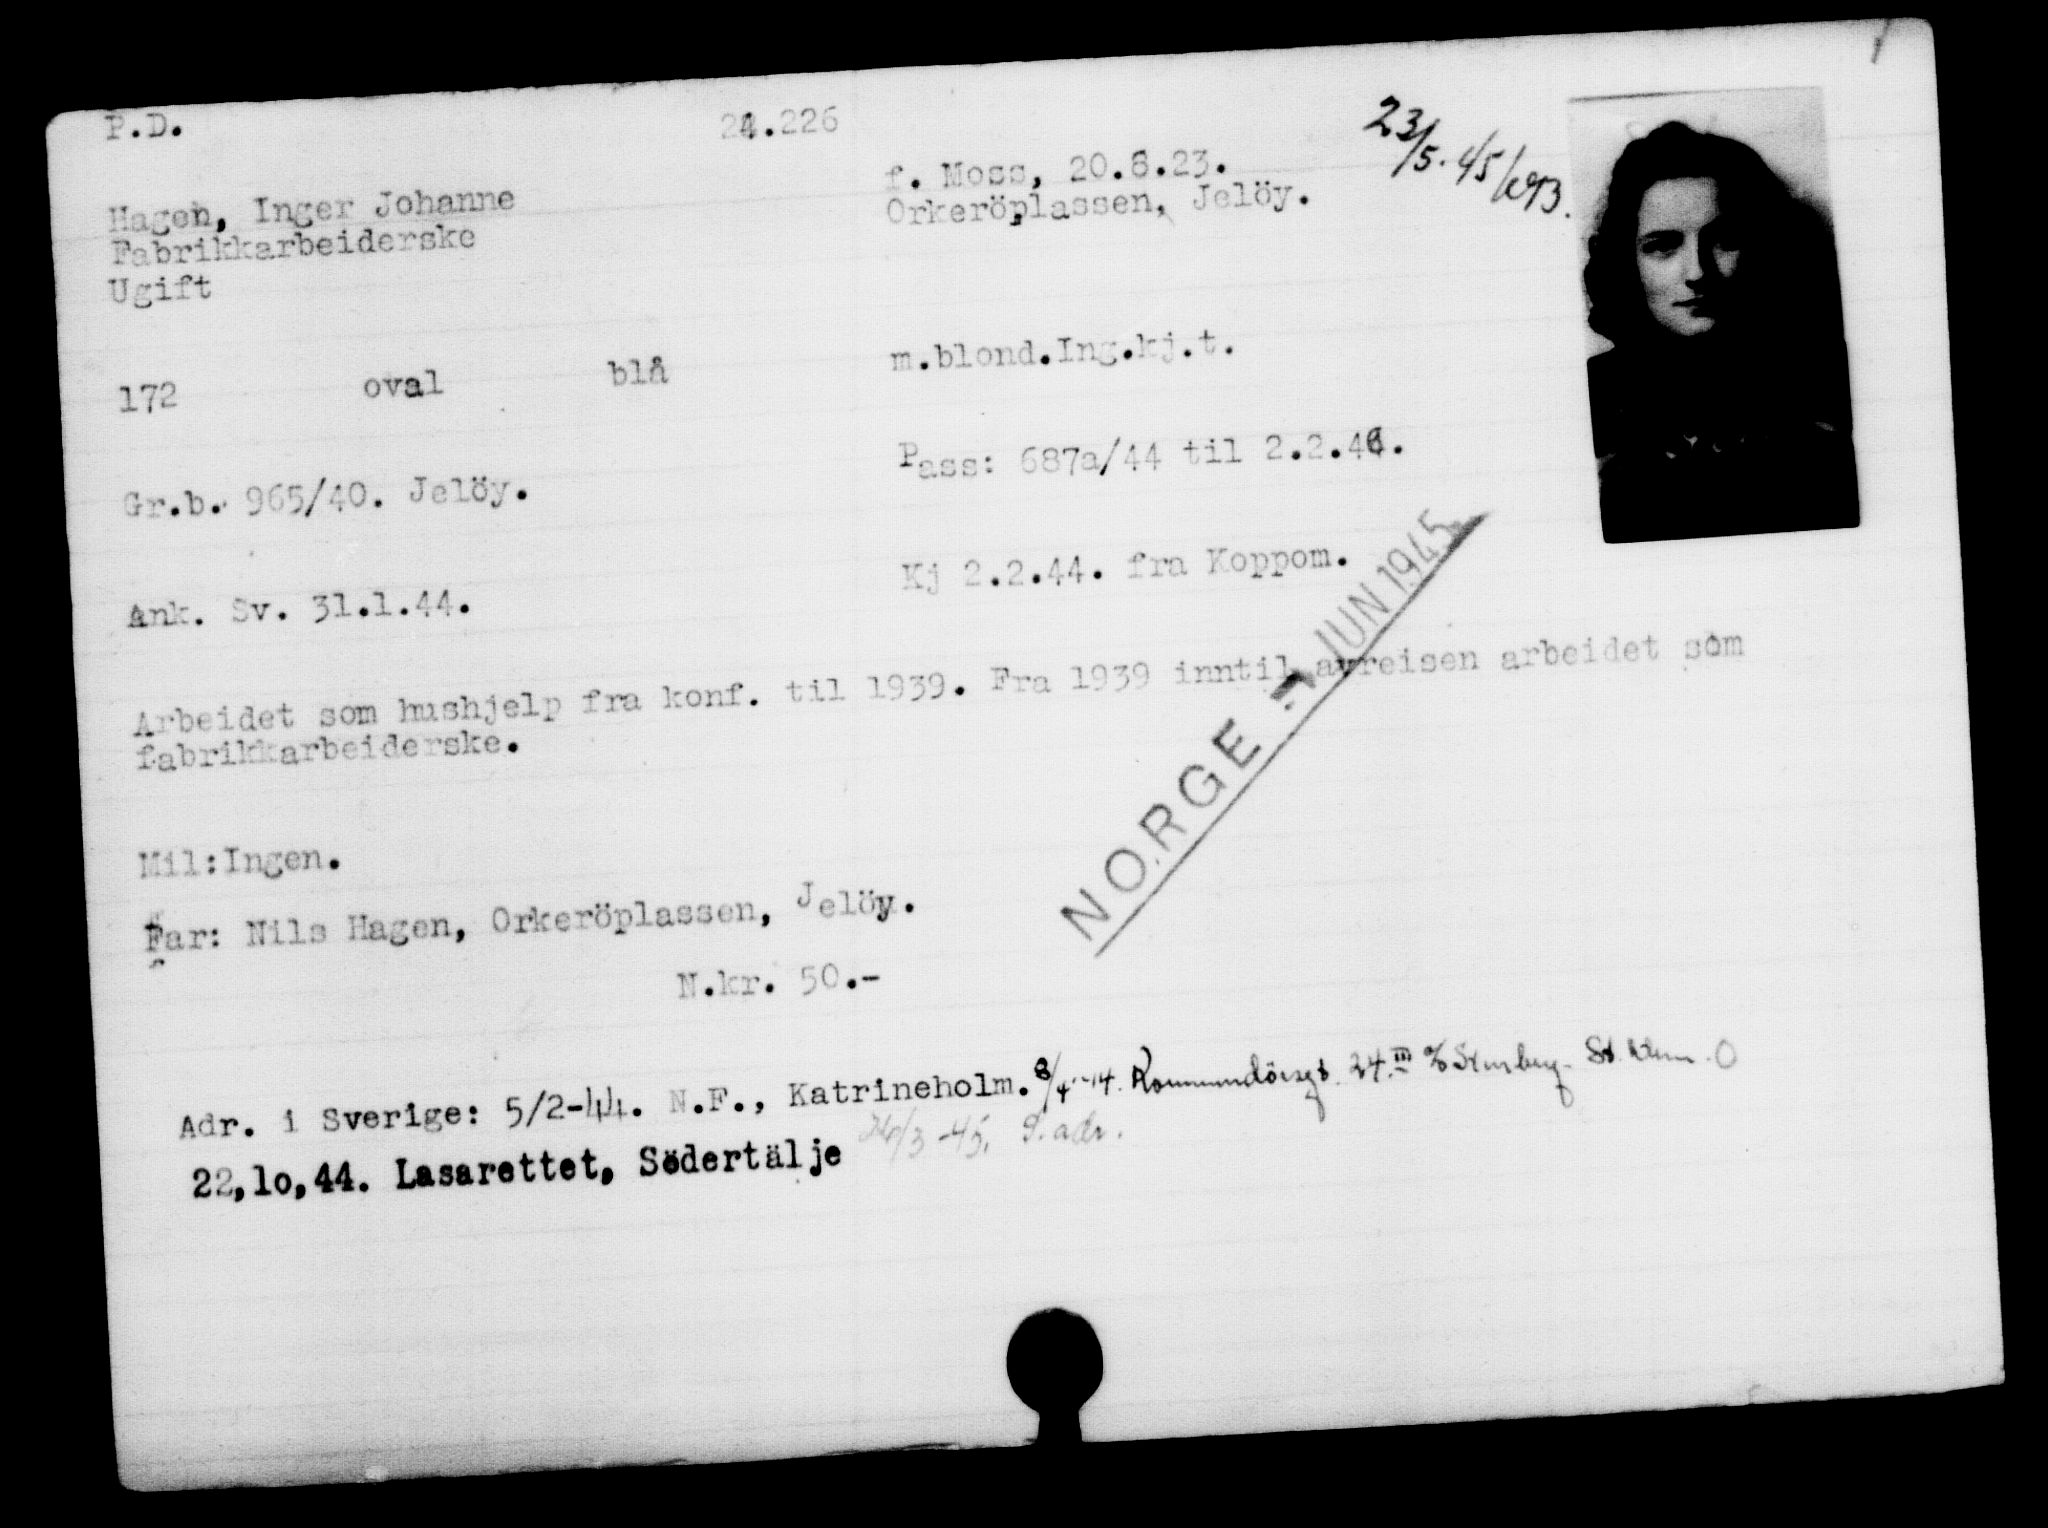 P.D.
24.226
23/5.45/
f. Moss, 20.8.23.
Hagen, Inger Johanne
Orkeröplassen, Jelöy.
Fabrikkarbeiderske
Ugift
172 oval blå m.blond.Ing.kj.t.
Gr.b. 965/40. Jelöy.
Pass: 687a/44 til 2.2.46.
Ank. Sv. 31.1.44.
Kj 2.2.44. fra Koppom.
NORGE - 7 JUN 1945
Arbeidet som hushjelp fra konf. til 1939. Fra 1939 inntil avreisen arbeidet som
fabrikkarbeiderske.
Mil:Ingen.
Far: Nils Hagen, Orkeröplassen, Jelöy.
N.kr. 50.-
Adr. i Sverige: 5/2-44. N.F., Katrineholm. 8/4-44. 24.III
22,1o,44. Lasarettet, Södertälje 26/3-45. S. adr.